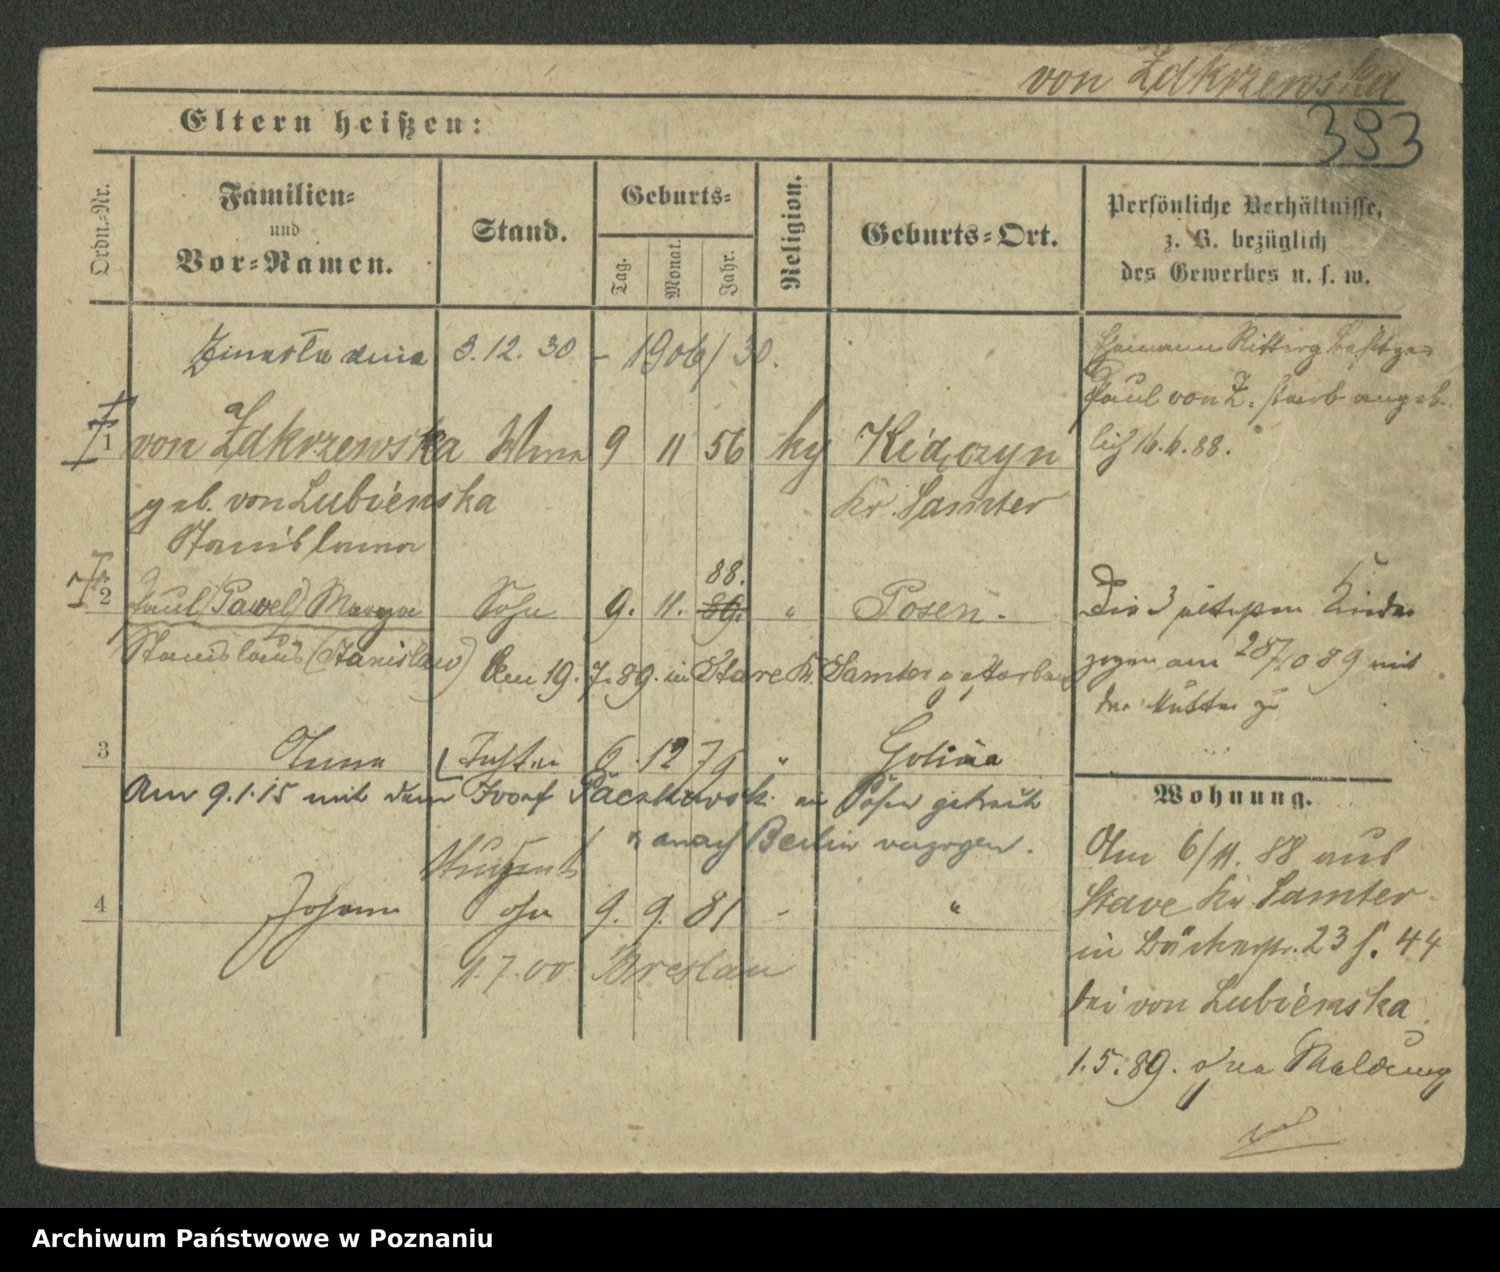 von Zdkrzewska
Eltern heißen:
393
Ordn.-Nr.
Familien-
und
Vor-Namen.
Stand.
Geburts-
Tag.
Monat.
Jahr.
Religion.
Geburts-Ort.
Persönliche Verhältnisse,
z. B. bezüglich
des Gewerbes u. s. w.
Zmarła dnia 3.12.30 – 1906/30.
Ehemann Ritterg besitzer
Paul von Z. starb angeb-
lich 16.6.88.
1 von Zdkrzewska Wwe 9 11 56 ky Kiączyn
geb. von Lubienska Kr. Samter
Stanislawa
88.
2 Paul (Pawel) Marya Sohn 9. 11. 89. " Posen.
Stanislaus (Stanislaw) Am 19.7.89. in Stare Kr. Samter gestorben
Die 3 jüngsten Kinder
zogen am 28/10 89 mit
der Mutter zu
3 Anna Tochter 6. 12 79 " Golina
Am 9.1.15 mit dem Paczkowsk. in Posen getraut
u. nach Berlin verzogen.
Student
4 Johann Sohn 9. 9. 81 - "
1.7.00 Breslau
Wohnung.
Am 6/11. 88 aus
Stave Kr. Samter
in Bäckerstr. 23 44
bei von Lubienska
1.5.89. ohne Meldung
Archiwum Państwowe w Poznaniu